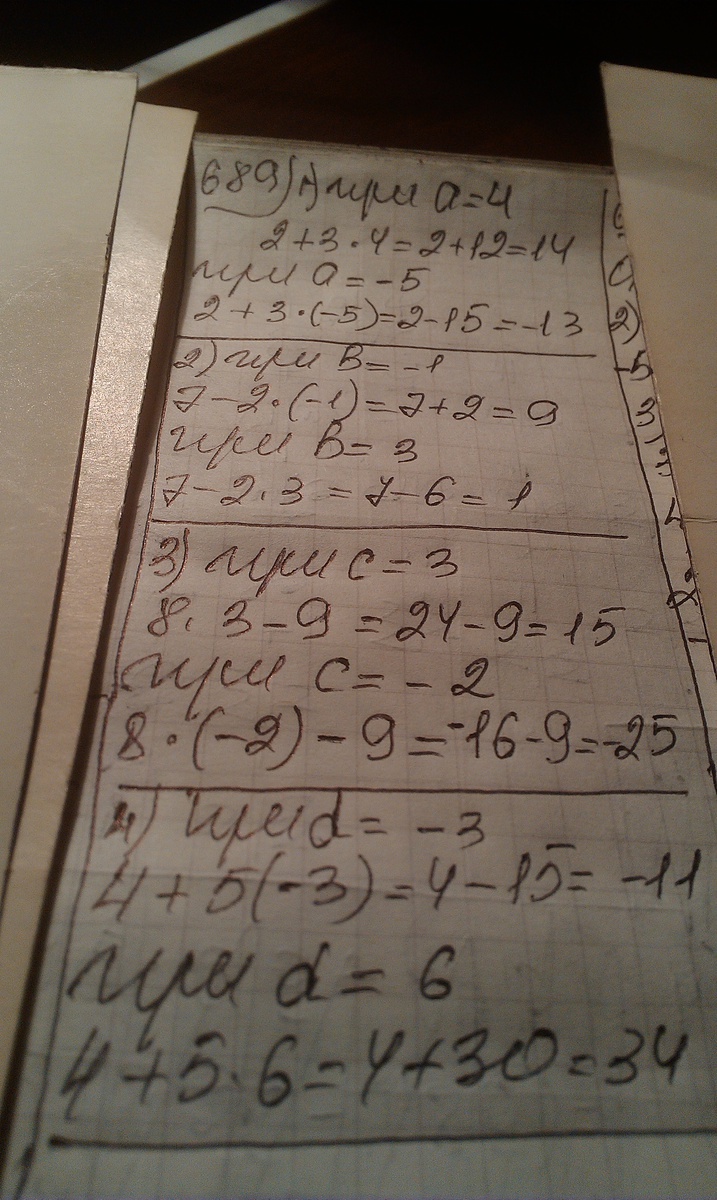 689) 1) при a=4
2+3·4=2+12=14
при a=-5
2+3·(-5)=2-15=-13
2) при B=-1
7-2·(-1)=7+2=9
при B=3
7-2·3=7-6=1
3) при c=3
8·3-9=24-9=15
при c=-2
8·(-2)-9=-16-9=-25
4) при d=-3
4+5(-3)=4-15=-11
при d=6
4+5·6=4+30=34
2)